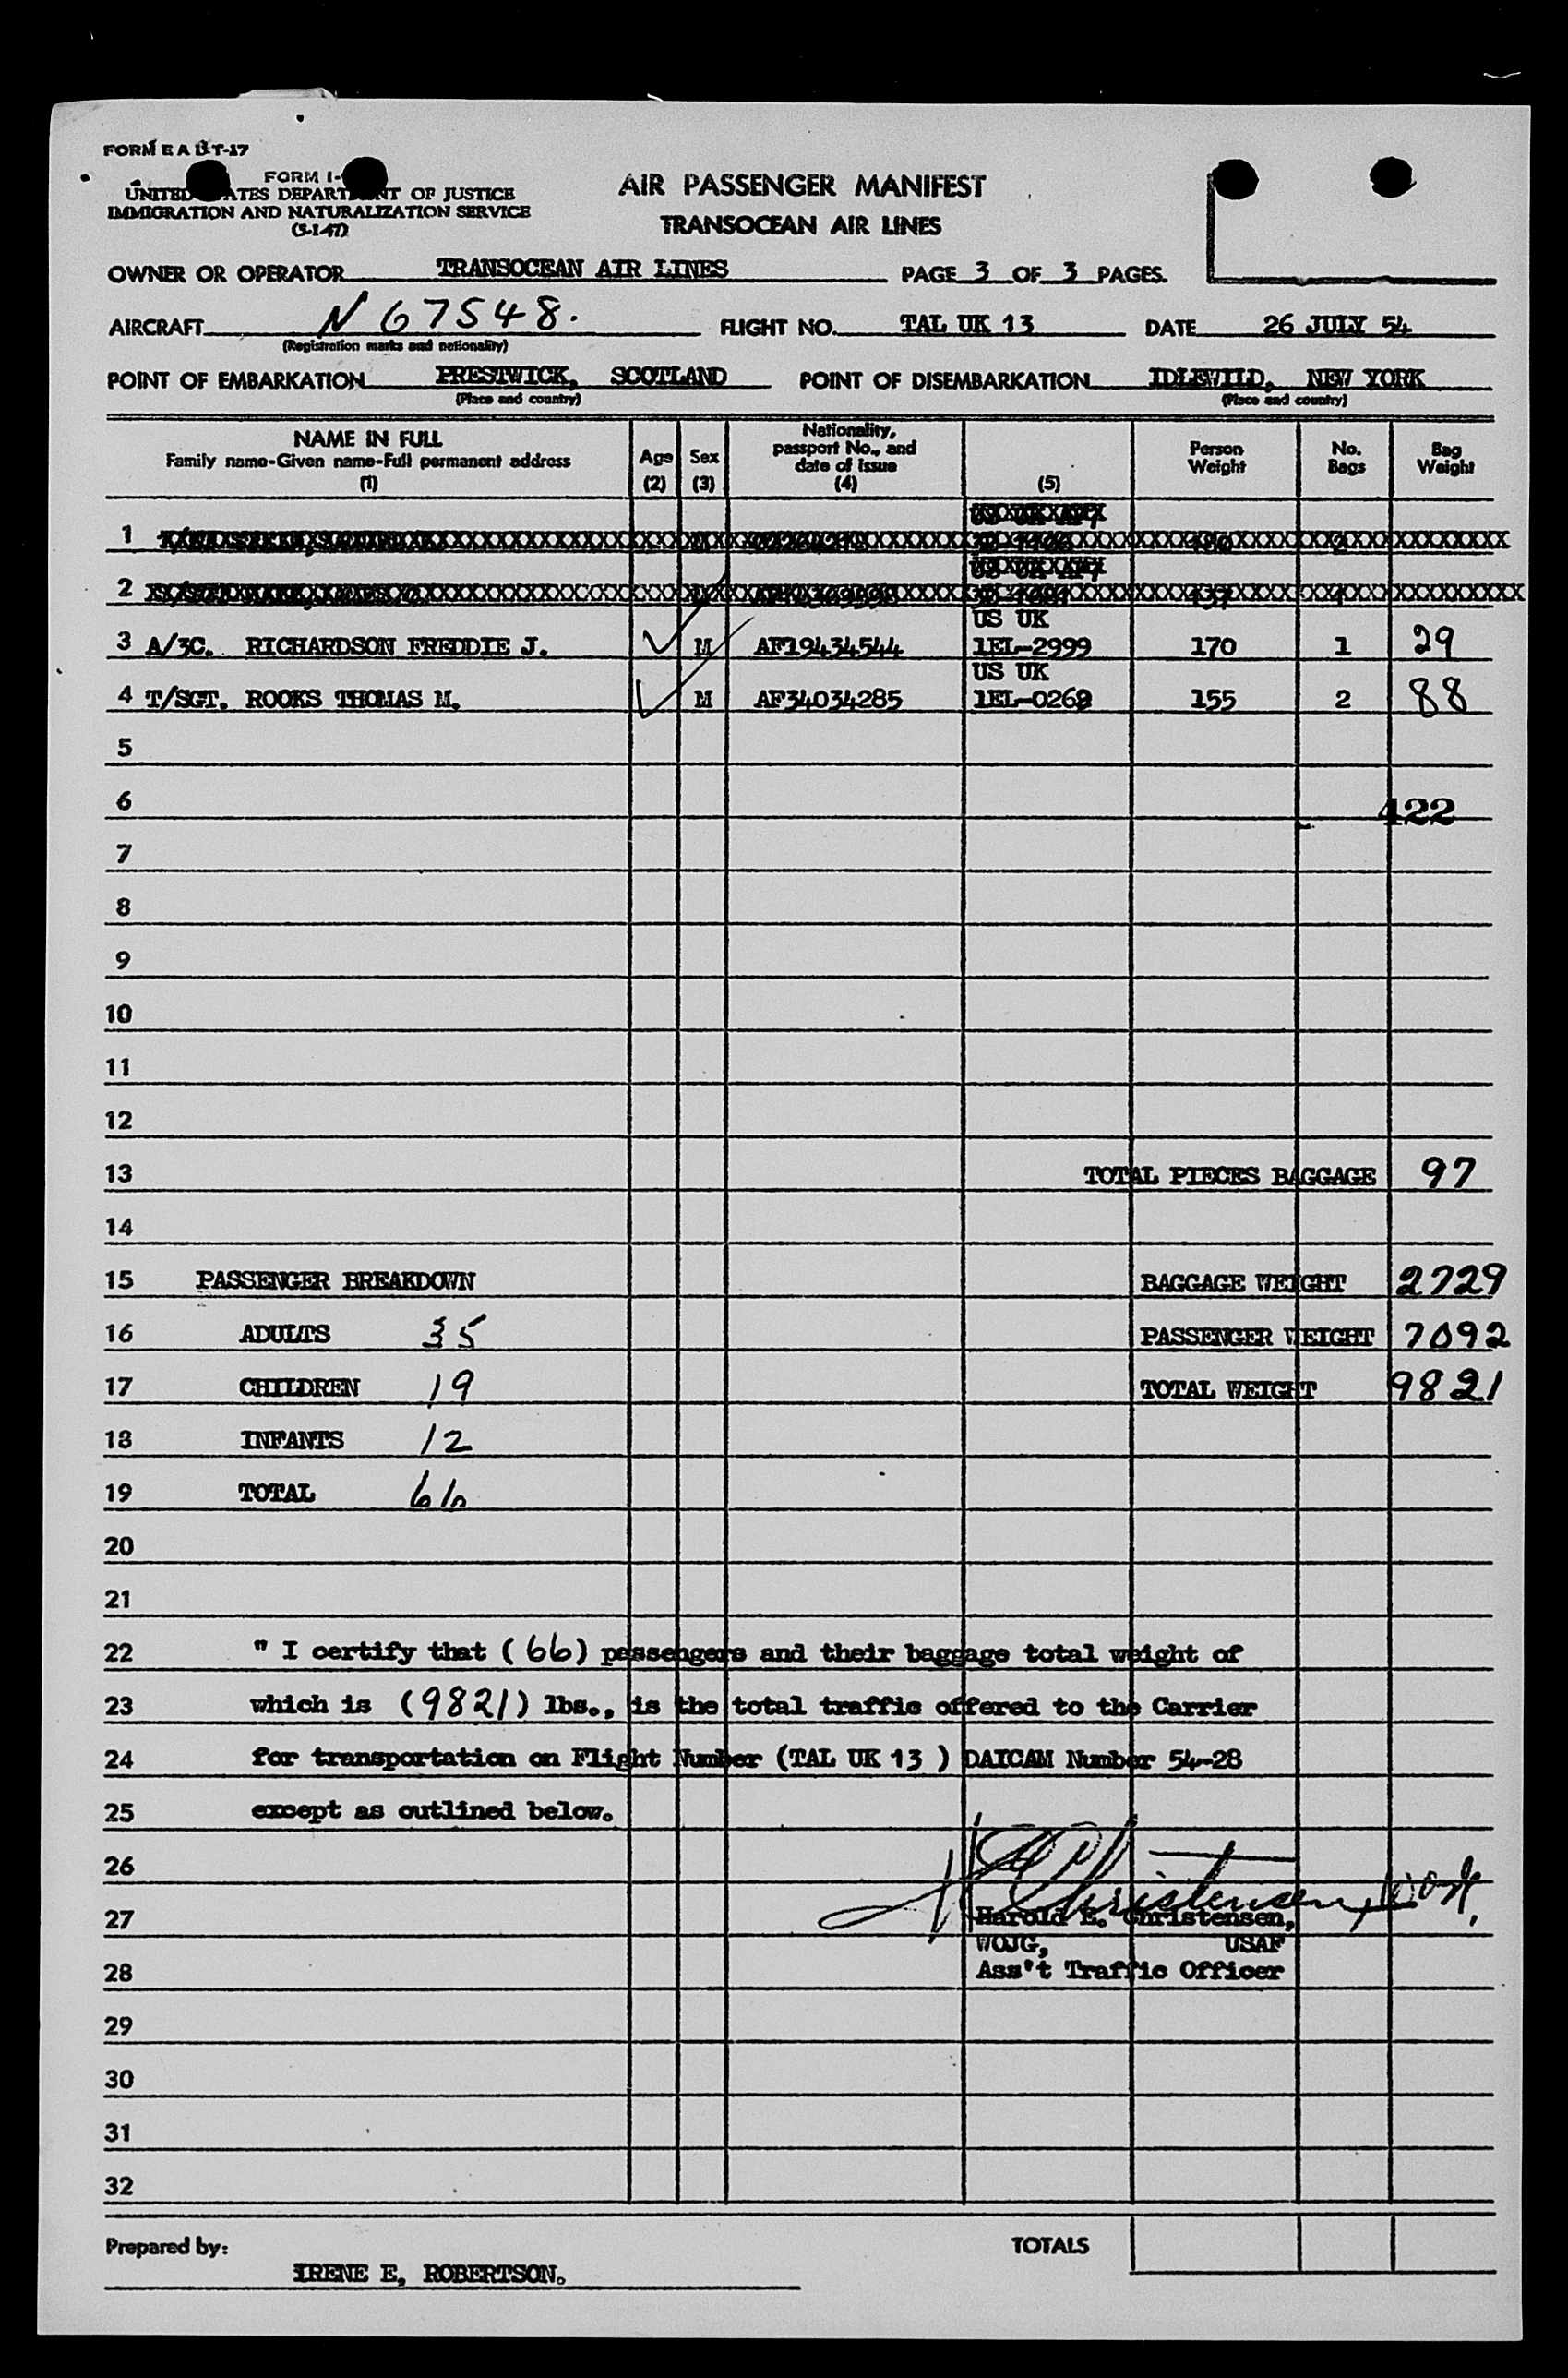 FORM E A B T-17
FORM I-
UNITED STATES DEPARTMENT OF JUSTICE
IMMIGRATION AND NATURALIZATION SERVICE
(5-1-47)
AIR PASSENGER MANIFEST
TRANSOCEAN AIR LINES
OWNER OR OPERATOR TRANSOCEAN AIR LINES PAGE 3 OF 3 PAGES.
AIRCRAFT N 67548. FLIGHT NO. TAL UK 13 DATE 26 JULY 54
(Registration marks and nationality)
POINT OF EMBARKATION PRESTWICK, SCOTLAND POINT OF DISEMBARKATION IDLEWILD, NEW YORK
(Place and country) (Place and country)
NAME IN FULL
Family name-Given name-Full permanent address
(1)
Age
(2)
Sex
(3)
Nationality,
passport No., and
date of issue
(4)
(5)
Person
Weight
No.
Bags
Bag
Weight
1
2
US UK
3 A/3C. RICHARDSON FREDDIE J. M AF19434544 1EL-2999 170 1 29
US UK
4 T/SGT. ROOKS THOMAS M. M AF34034285 155 2 88
5
6 422
7
8
9
10
11
12
13 TOTAL PIECES BAGGAGE 97
14
15 PASSENGER BREAKDOWN BAGGAGE WEIGHT 2729
16 ADULTS 35 PASSENGER WEIGHT 7092
17 CHILDREN 19 TOTAL WEIGHT 9821
18 INFANTS 12
19 TOTAL 66
20
21
22 " I certify that ( 66 ) passengers and their baggage total weight of
23 which is ( 9821 ) lbs., is the total traffic offered to the Carrier
24 for transportation on Flight Number (TAL UK 13 ) DAICAM Number 54-28
25 except as outlined below.
26 Christensen, WOJG,
27 Harold E. Christensen,
WOJG, USAF
28 Ass't Traffic Officer
29
30
31
32
Prepared by: TOTALS
IRENE E, ROBERTSON.